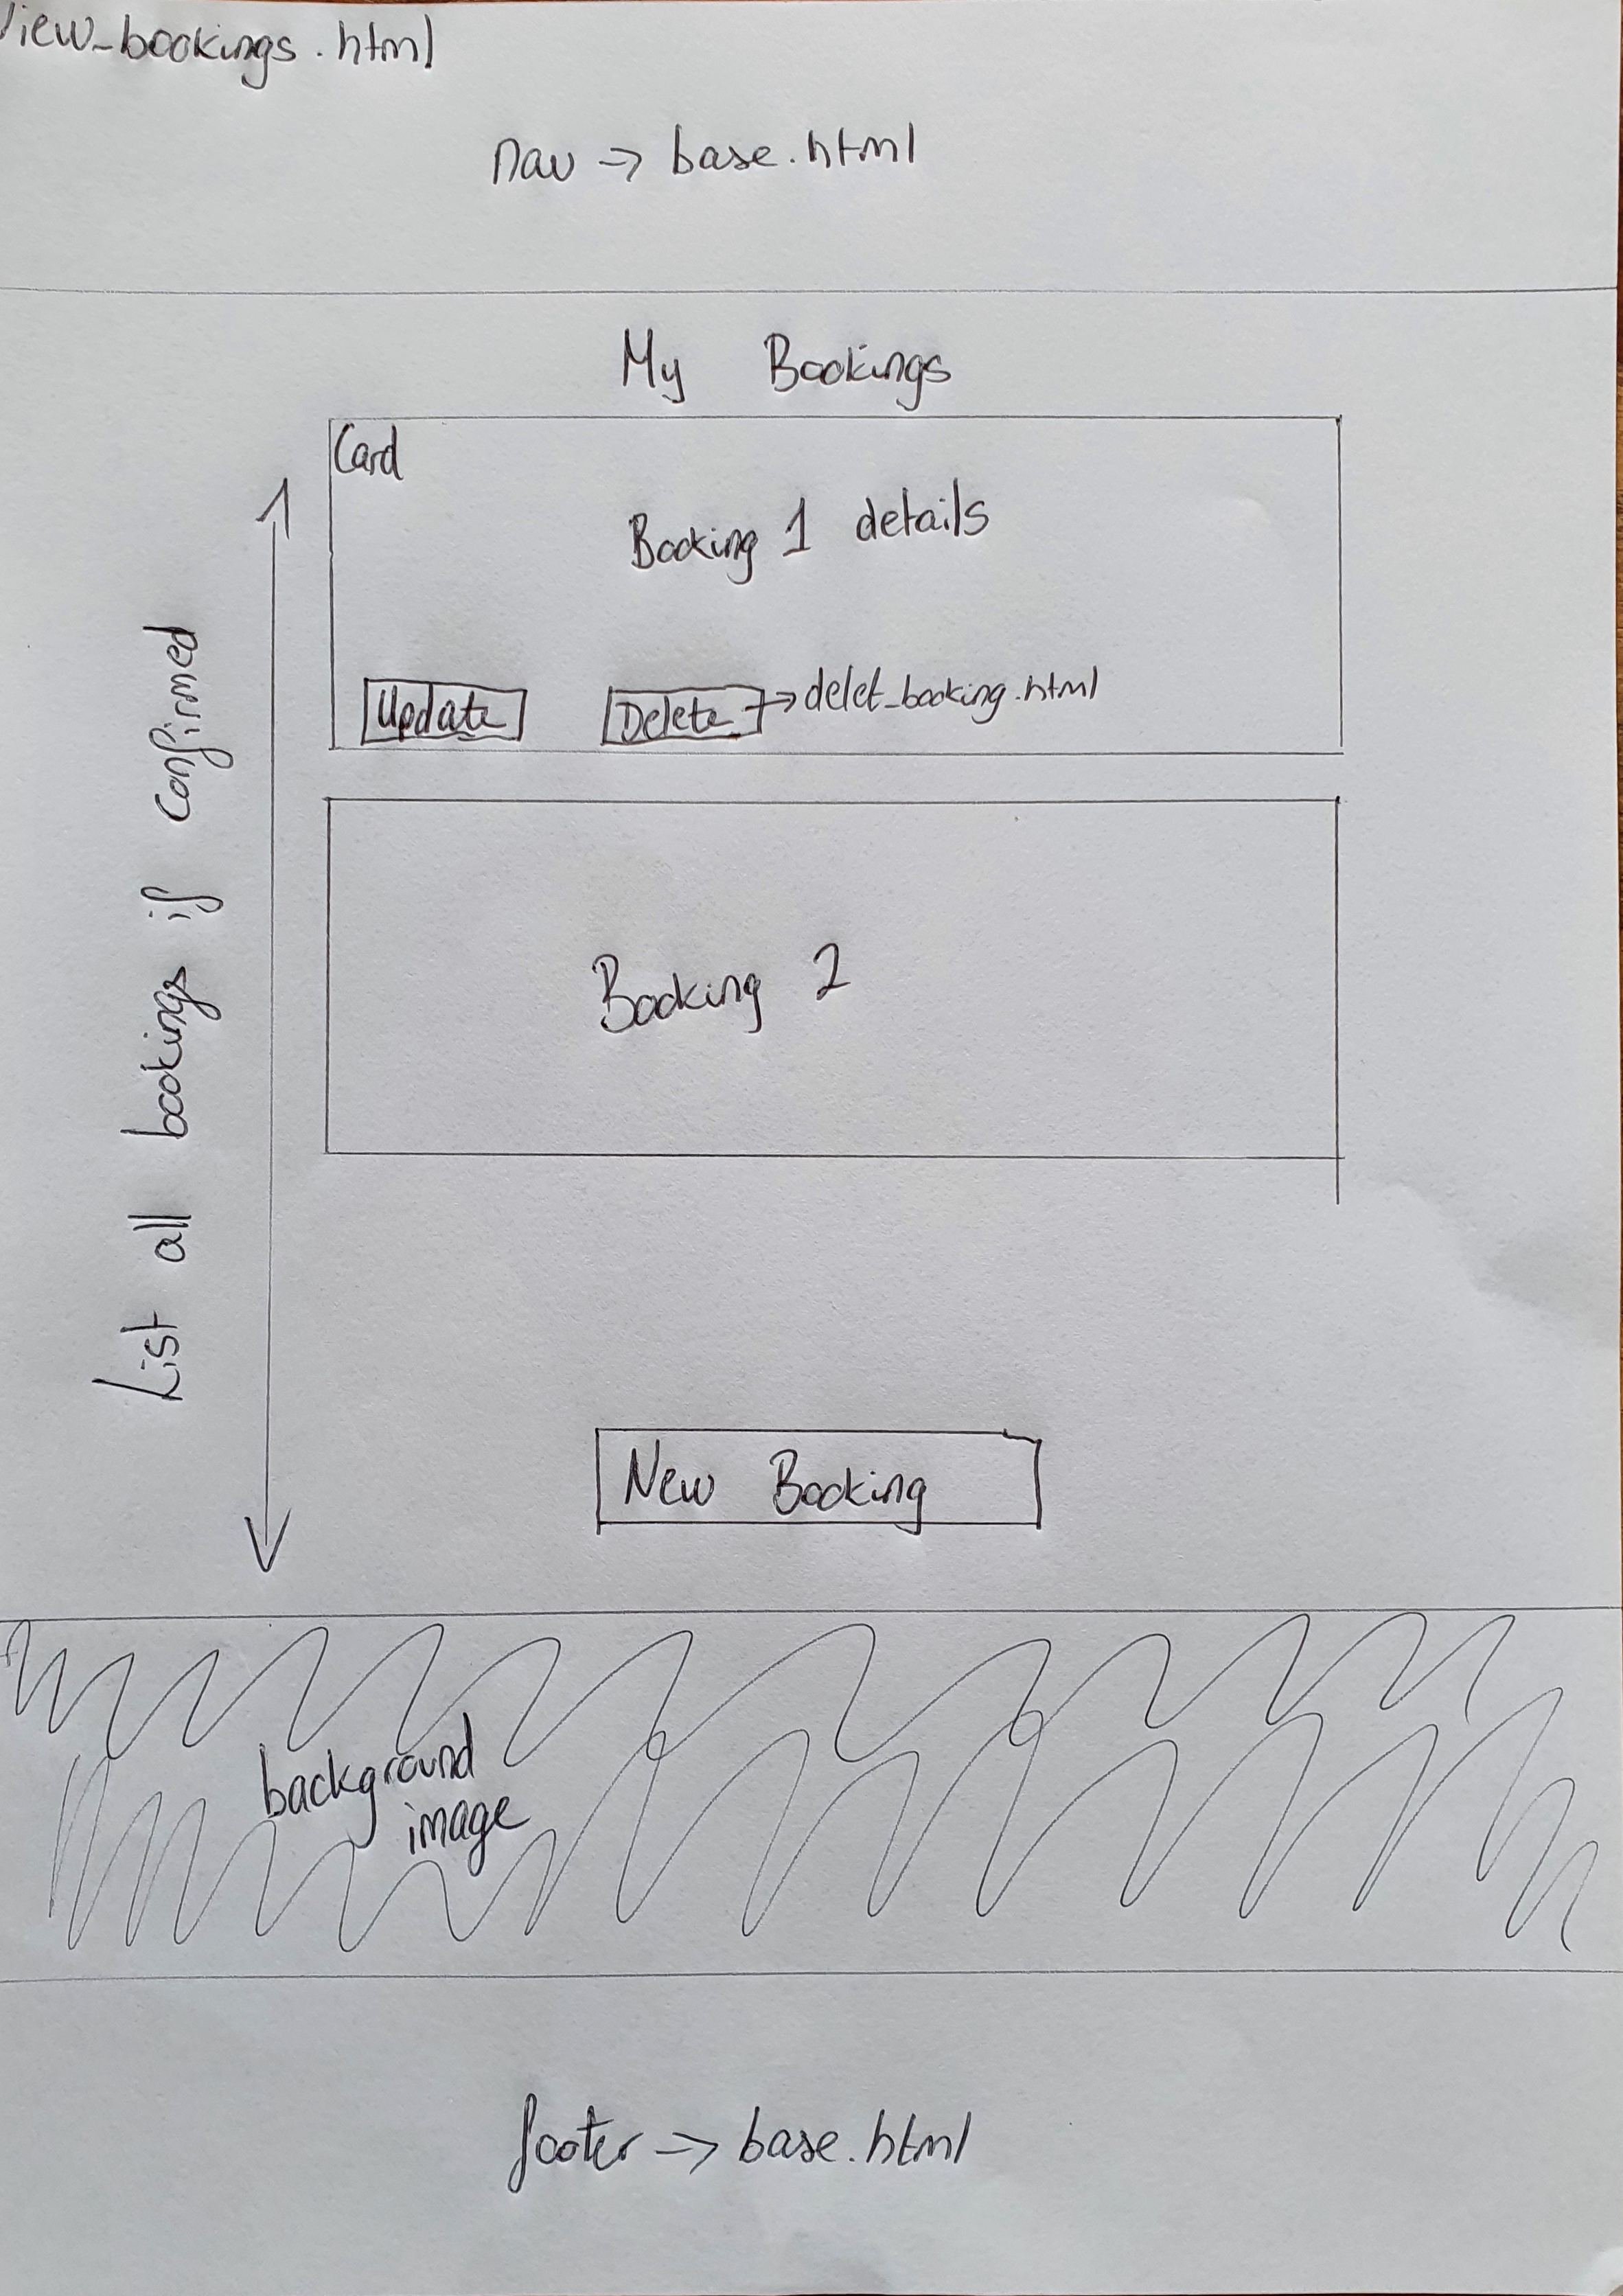 View_bookings.html
nav -> base.html
My Bookings
Card
Booking 1 details
Update
Delete -> delet_booking.html
List all bookings if confirmed
Booking 2
New Booking
background
image
footer -> base.html